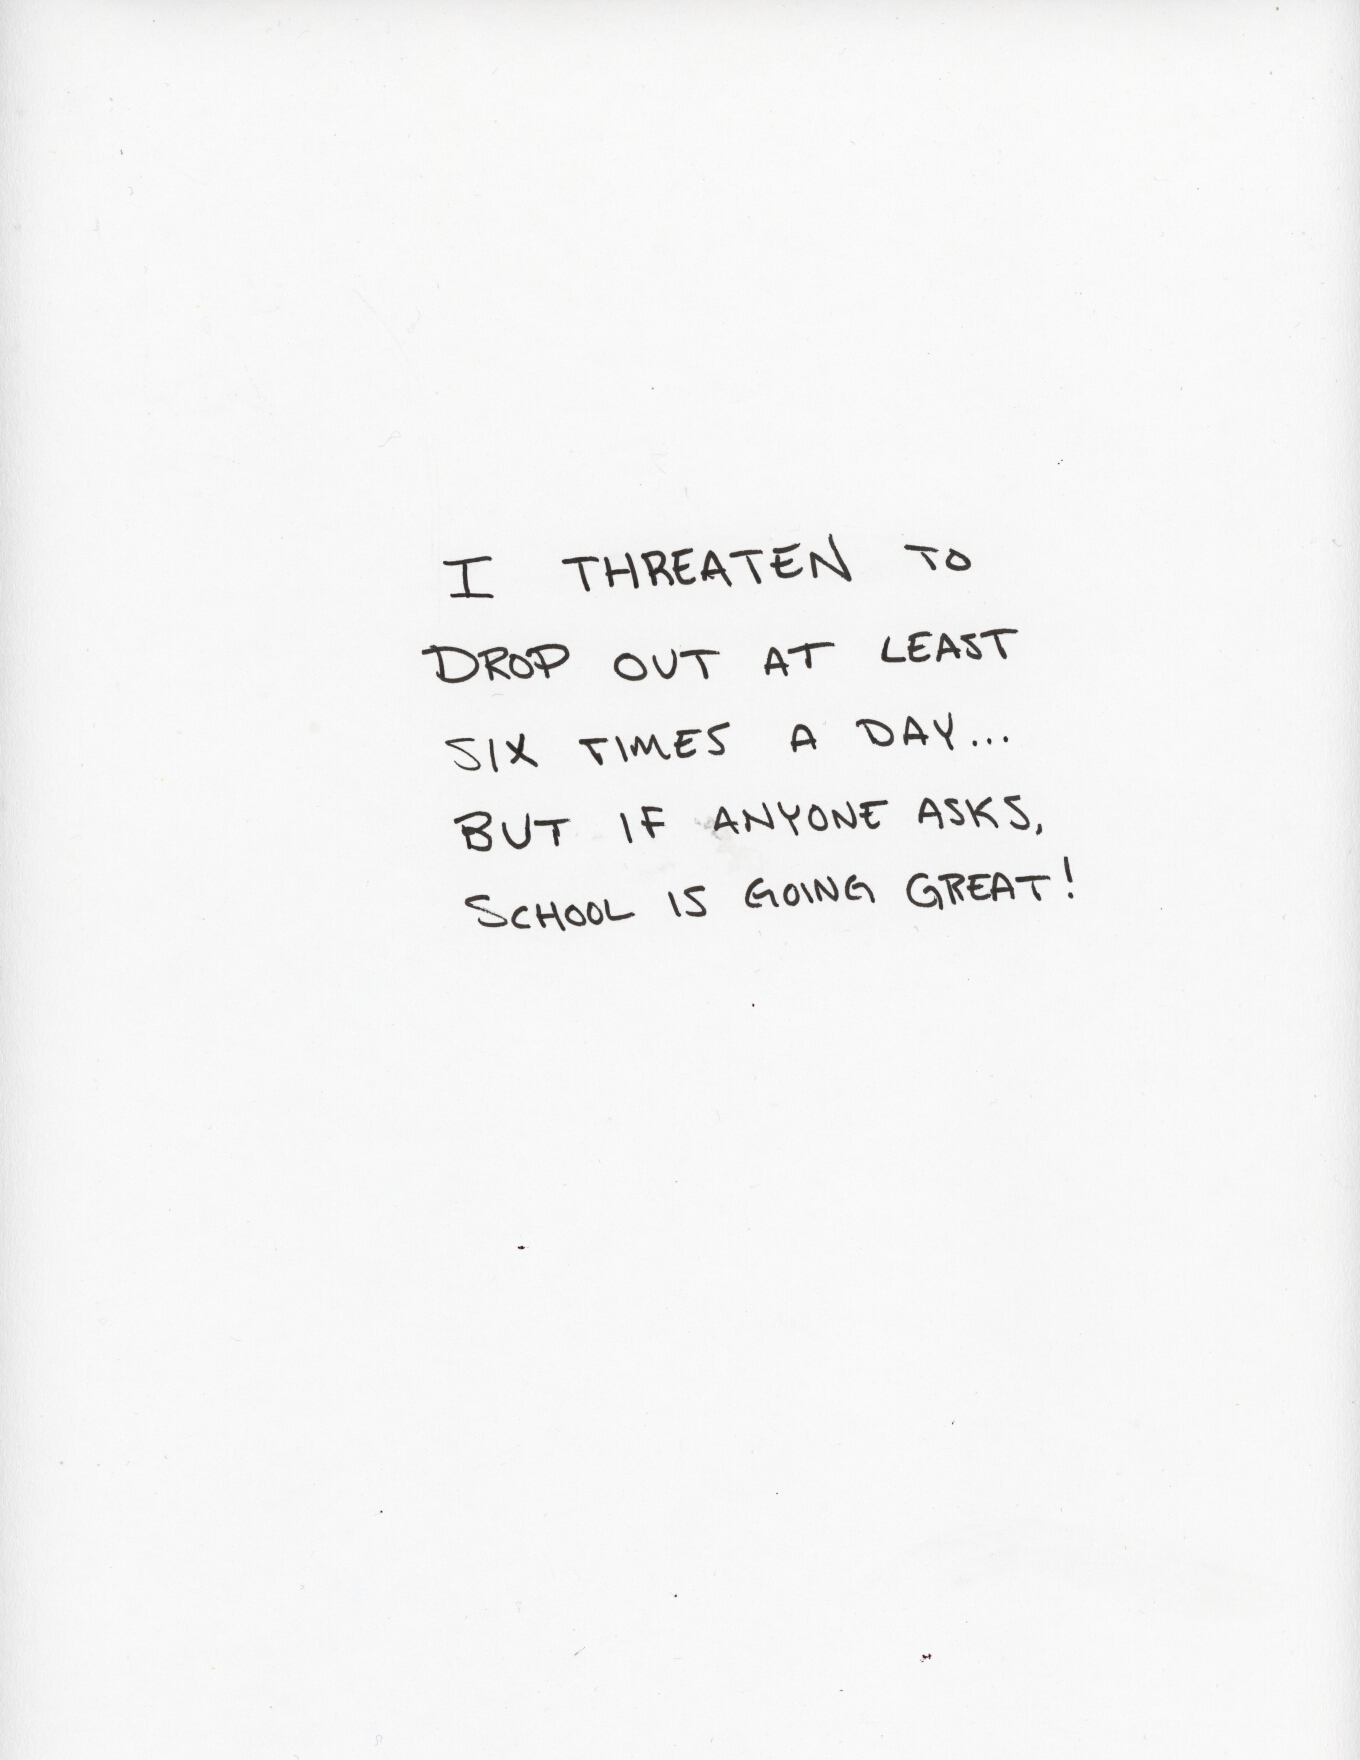 I THREATEN TO
DROP OUT AT LEAST
SIX TIMES A DAY...
BUT IF ANYONE ASKS,
SCHOOL IS GOING GREAT!